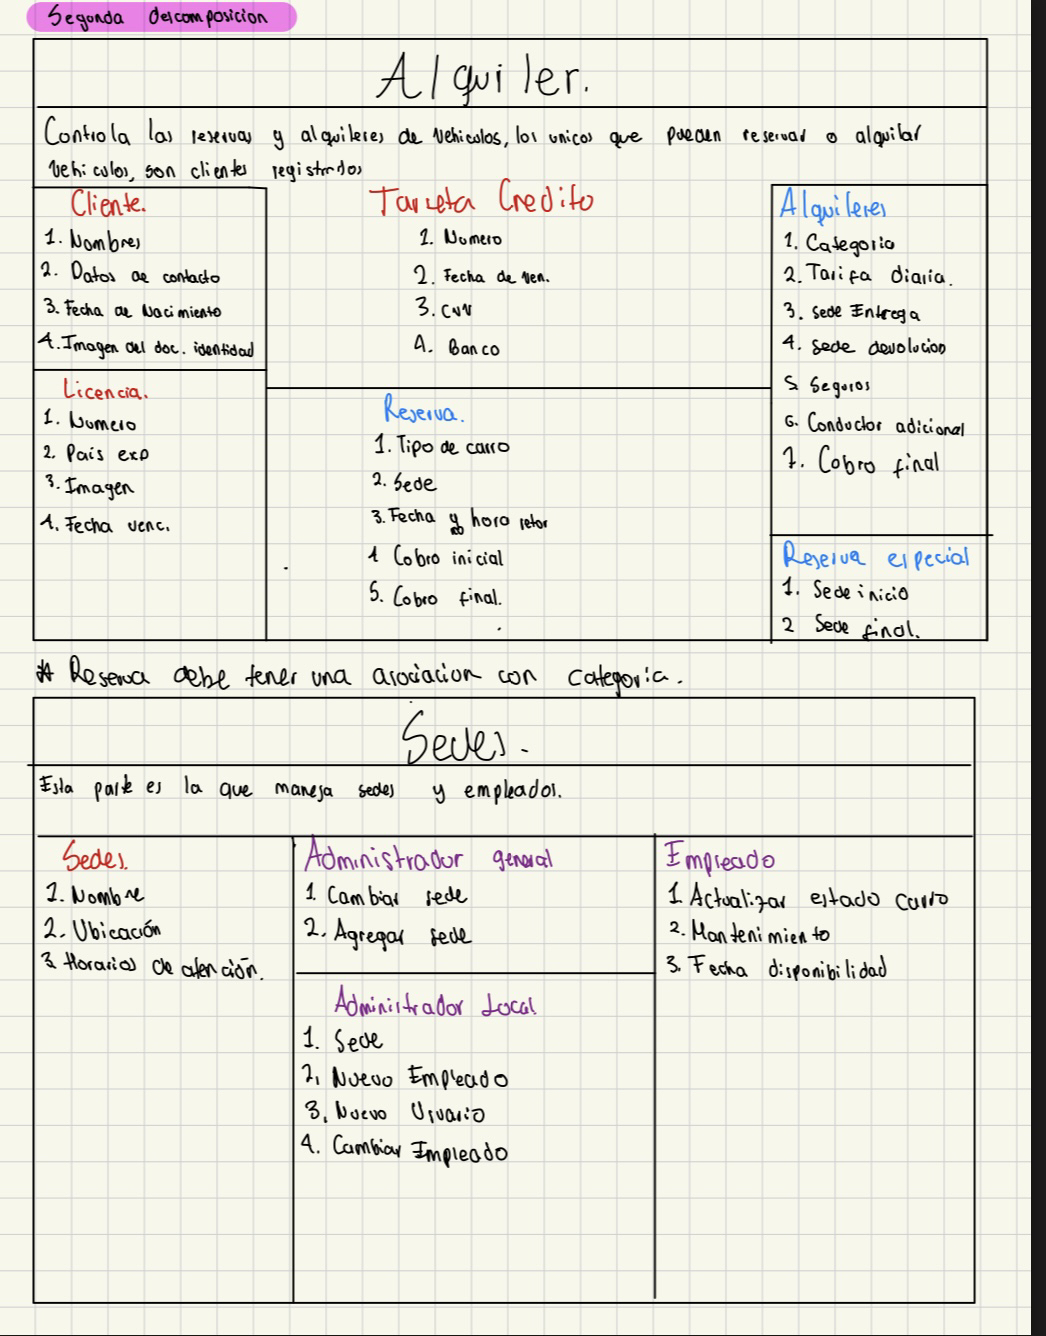 Segunda descomposicion
Alquiler.
Controla las reservas y alquileres de vehiculos, los unicos que pueden reservar o alquilar
vehiculos, son clientes registrados
Cliente.
1. Nombres
2. Datos de contacto
3. Fecha de Nacimiento
4. Imagen del doc. identidad
Licencia.
1. Numero
2. Pais exp
3. Imagen
4. Fecha venc.
Tarjeta Credito
1. Numero
2. Fecha de ven.
3. CVV
4. Banco
Reserva.
1. Tipo de carro
2. Sede
3. Fecha y hora retor
4 Cobro inicial
5. Cobro final.
Alquileres
1. Categoria
2. Tarifa diaria.
3. Sede Entrega
4. Sede devolucion
5. Seguros
6. Conductor adicional
7. Cobro final
Reserva especial
1. Sede inicio
2 Sede final.
* Reserva debe tener una asociacion con categoria.
Sedes.
Esta parte es la que maneja sedes y empleados.
Sedes.
1. Nombre
2. Ubicación
3. Horarios de atención.
Administrador general
1. Cambiar sede
2. Agregar sede
Administrador Local
1. Sede
2. Nuevo Empleado
3. Nuevo Usuario
4. Cambiar Empleado
Empleado
1. Actualizar estado carro
2. Mantenimiento
3. Fecha disponibilidad